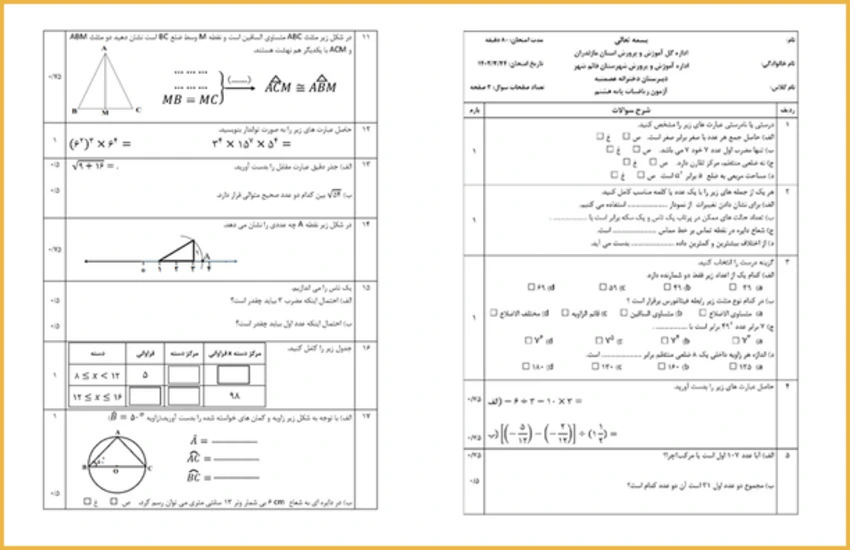 نام:
بسمه تعالی
مدت امتحان: ۸۰ دقیقه
اداره کل آموزش و پرورش استان مازندران
نام خانوادگی:
اداره آموزش و پرورش شهرستان قائم شهر
تاریخ امتحان:
دبیرستان دخترانه عصمتیه
نام کلاس:
آزمون ریاضیات پایه هشتم
تعداد صفحات سوال: ۲ صفحه
ردیف
شرح سوالات
بارم
۱
درستی یا نادرستی عبارت های زیر را مشخص کنید.
الف) حاصل جمع هر عدد با صفر برابر صفر است. ص غ
ب) تنها مضرب اول عدد ۷ خود ۷ می باشد. ص غ
ج) نه ضلعی منتظم، مرکز تقارن دارد. ص غ
د) مساحت مربعی به ضلع ۵ برابر است ص غ
۱
۲
هر یک از جمله های زیر را با یک عدد یا کلمه مناسب کامل کنید.
الف) برای نشان دادن تغییرات از نمودار ............ استفاده می کنیم.
ب) تعداد حالت های ممکن در پرتاب یک تاس و یک سکه برابر است با ............
ج) شعاع دایره در نقطه تماس بر خط مماس ............ است.
د) از اختلاف بیشترین و کمترین داده ............ بدست می آید.
۱
۳
گزینه درست را انتخاب کنید.
الف) کدام یک از اعداد زیر فقط دو شمارنده دارد.
a) ۲۹ b) ۴۹ c) ۵۹ d) ۶۹
ب) در کدام نوع مثلث زیر رابطه فیثاغورس برقرار است ؟
a) متساوی الاضلاع b) متساوی الساقین c) قائم الزاویه d) مختلف الاضلاع
ج) ۷ برابر عدد ۴۹² برابر است با ............
د) اندازه هر زاویه داخلی یک ۸ ضلعی منتظم برابر ............ است.
a) ۱۳۵ b) ۱۶۰ c) ۱۲۰ d) ۱۸۰
۱
۴
حاصل عبارت های زیر را بدست آورید.
الف) −۶ ÷ ۳ − ۱۰ × ۳ =
۰/۷۵
ب)
۰/۷۵
۵
الف) آیا عدد ۱۰۷ اول است یا مرکب؟چرا؟
۰/۷۵
ب) مجموع دو عدد اول ۳۱ است آن دو عدد کدام است؟
۰/۵
۱۱
در شکل زیر مثلث ABC متساوی الساقین است و نقطه M وسط ضلع BC است نشان دهید دو مثلث ABM
و ACM با یکدیگر هم نهشت هستند.
۰/۷۵
A
B M C
... ... ...
... ... ...
MB = MC
(........)
ACM ≅ ABM
۱۲
حاصل عبارت های زیر را به صورت تواندار بنویسید.
(۶²)³ × ۶⁴ =
۳⁴ × ۱۵⁷ × ۵⁴ =
۱
۱۳
الف) جذر دقیق عبارت مقابل را بدست آورید.
√۹ + ۱۶ =
۰/۵
ب) √۵۴ بین کدام دو عدد صحیح متوالی قرار دارد.
۰/۵
۱۴
در شکل زیر نقطه A چه عددی را نشان می دهد.
۰/۷۵
A
۱۵
یک تاس را می اندازیم.
الف) احتمال اینکه مضرب ۳ بیاید چقدر است؟
۰/۵
ب) احتمال اینکه عدد اول بیاید چقدر است؟
۰/۵
۱۶
جدول زیر را کامل کنید.
۱
دسته فراوانی مرکز دسته مرکز دسته×فراوانی
۸ ≤ x < ۱۲ ۵
۱۲ ≤ x ≤ ۱۶ ۹۸
۱۷
الف) با توجه به شکل زیر زاویه و کمان های خواسته شده را بدست آورید.(زاویه B = ۵۰°)
۱
A
B O C
A =
AC =
BC =
ب) در دایره ای به شعاع ۶ cm بی شمار وتر ۱۳ سانتی متری می توان رسم کرد. ص غ
۰/۵